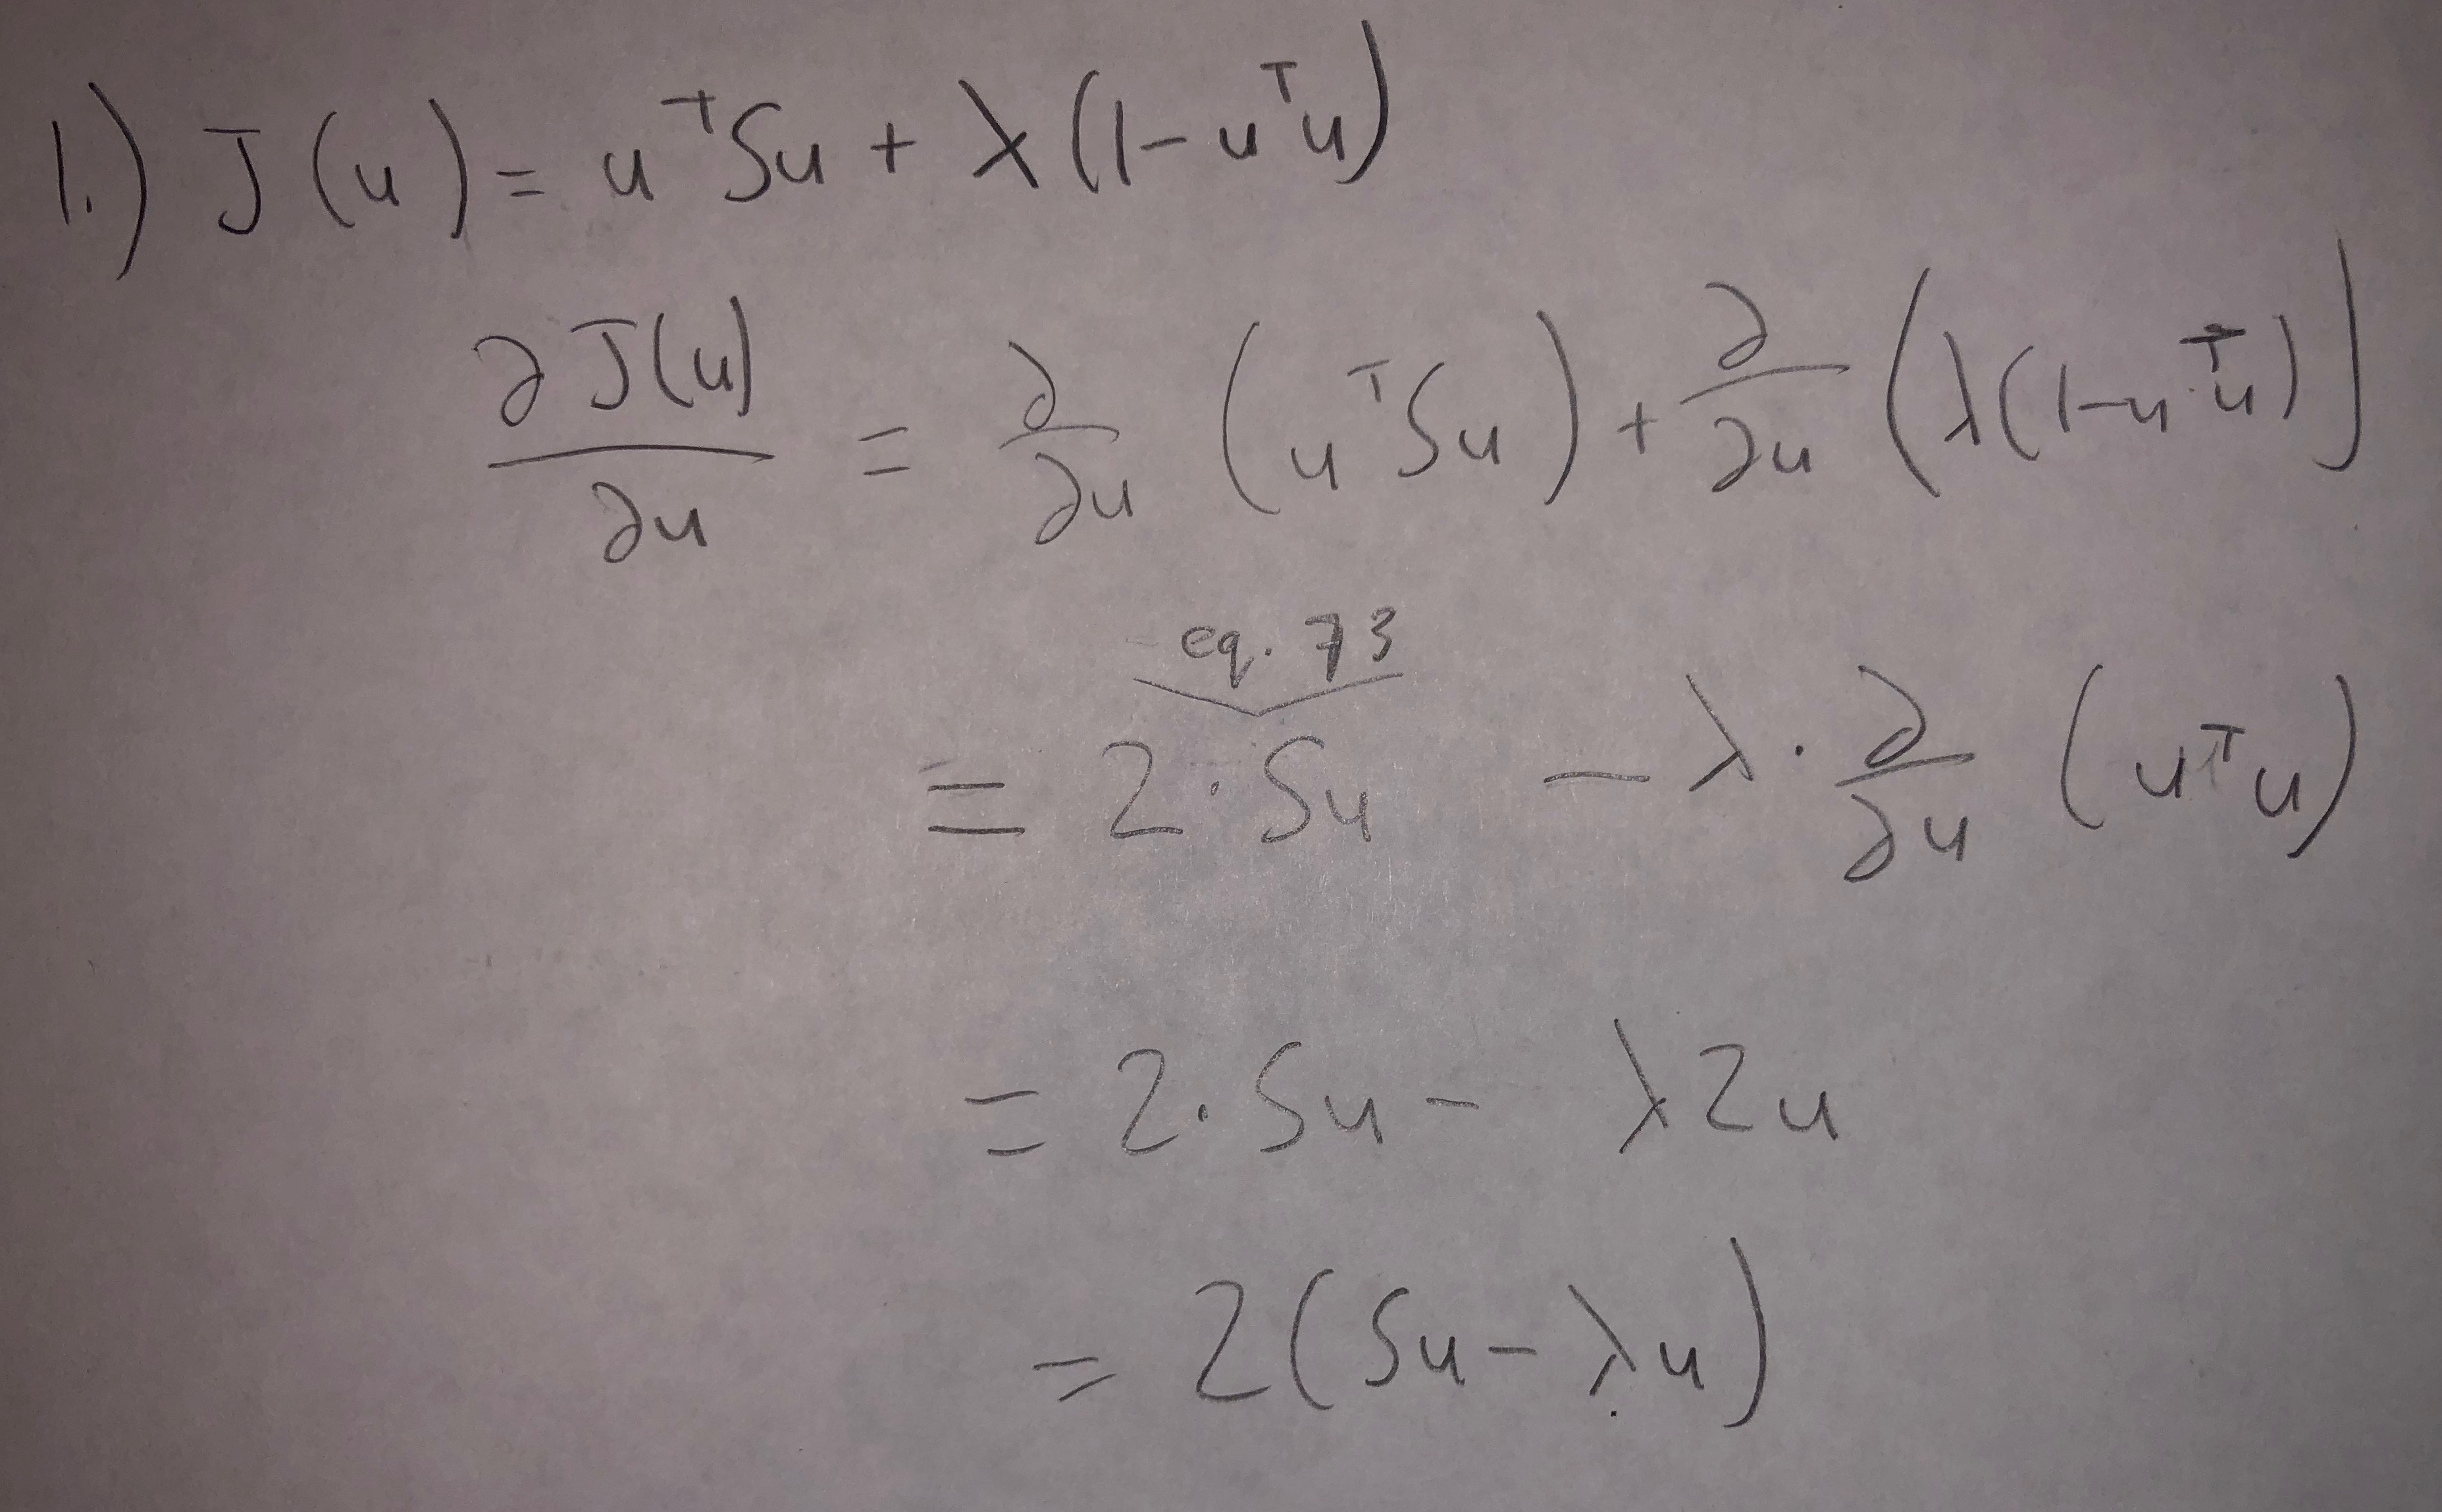 1.) J(u) = uᵀSu + λ(1-uᵀu)
∂J(u)/∂u = ∂/∂u (uᵀSu) + ∂/∂u (λ(1-uᵀu))
eq. 73
= 2·Su - λ·∂/∂u (uᵀu)
= 2·Su - λ2u
= 2(Su-λu)